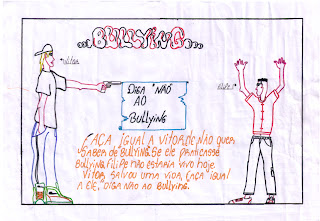 ...BULLYING...
VITOR
FILIPE
DIGA NÃO
AO
BULLYING
FAÇA IGUAL A VITOR, ELE NÃO QUER
SABER DE BULLYING. SE ELE PRATICASSE
BULLYING, FILIPE NÃO ESTARIA VIVO HOJE
VITOR SALVOU UMA VIDA, FAÇA IGUAL
A ELE, "DIGA NÃO AO BULLYING.